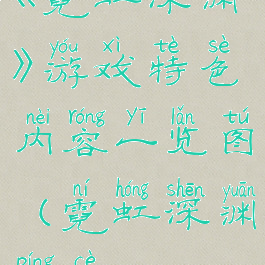 《霓虹深渊
yóu xì tè sè
》游戏特色
nèi róng yī lǎn tú
内容一览图
ní hóng shēn yuān
（霓虹深渊
píng cè